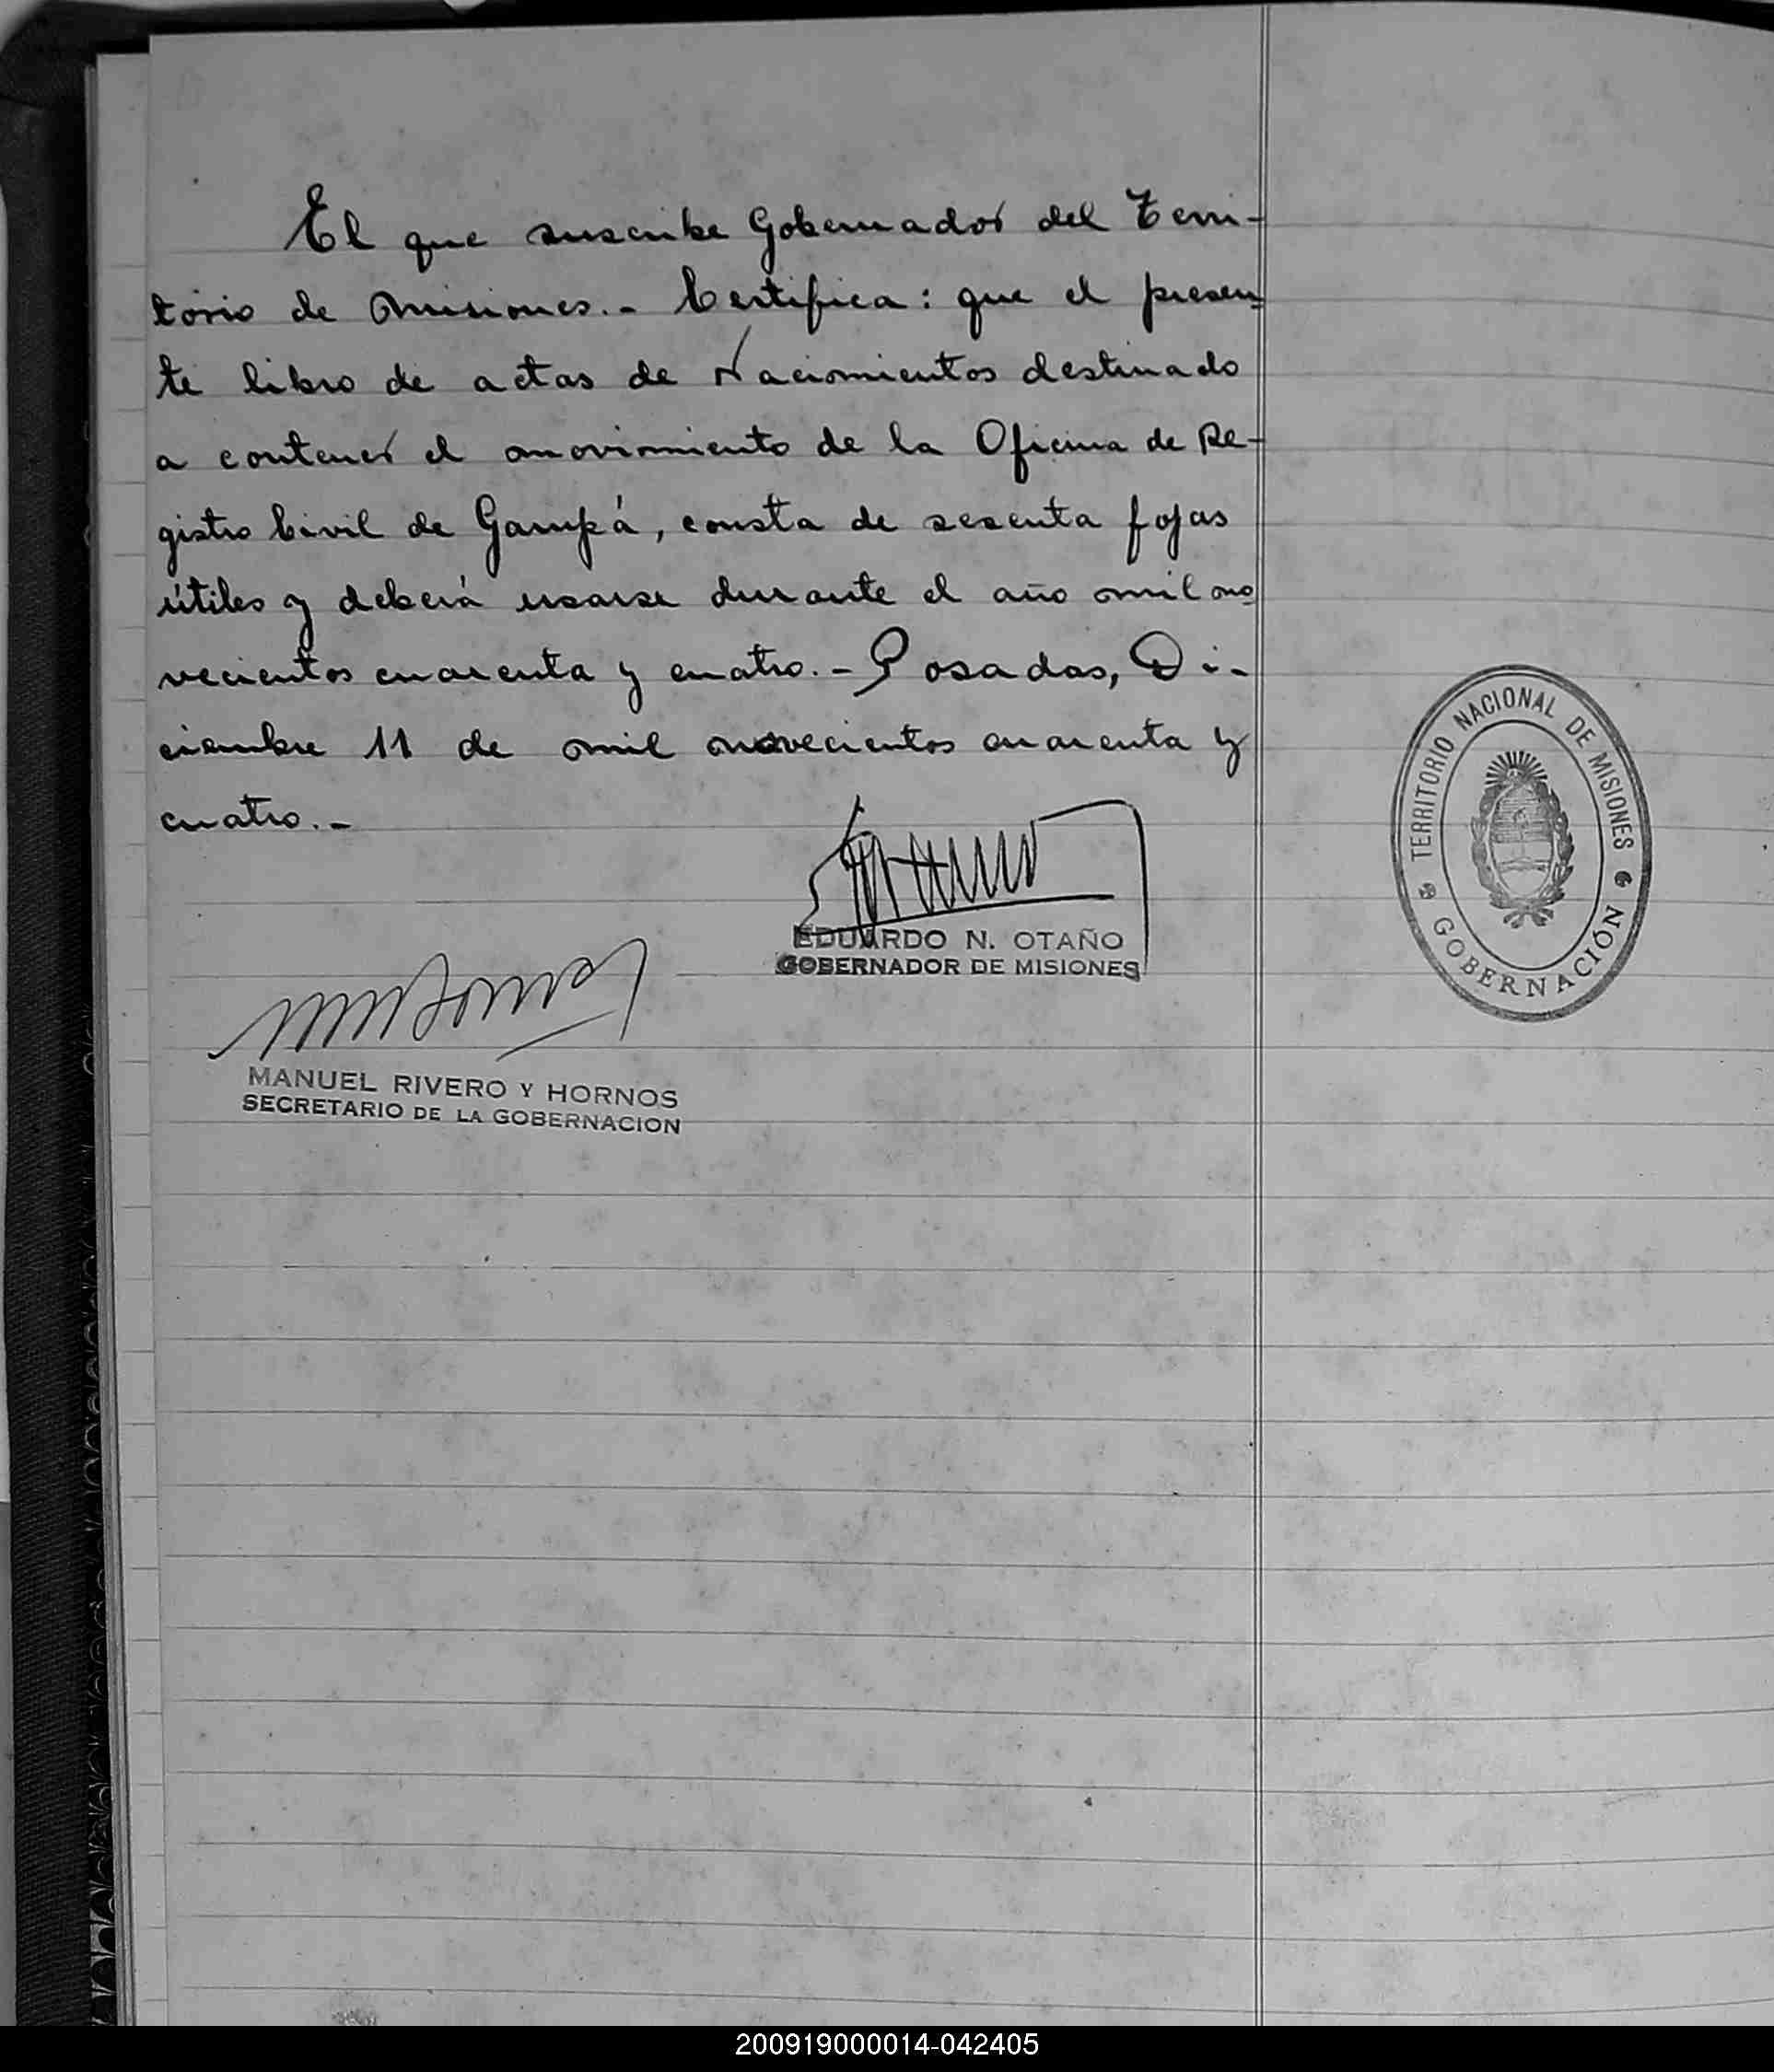 El que suscribe Gobernador del Terri-
torio de Misiones.- Certifica: que el presen-
te libro de actas de Nacimientos destinado
a contener el movimiento de la Oficina de Re-
gistro Civil de Garupá, consta de sesenta fojas
útiles y deberá usarse durante el año mil no
vecientos cuarenta y cuatro.- Posadas, Di-
ciembre 11 de mil novecientos cuarenta y
cuatro.-
EDUARDO N. OTAÑO
GOBERNADOR DE MISIONES
MANUEL RIVERO Y HORNOS
SECRETARIO DE LA GOBERNACION
TERRITORIO NACIONAL DE MISIONES
GOBERNACIÓN
200919000014-042405